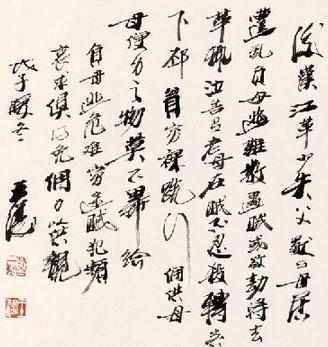 後漢江革少失父獨與母居
遭亂負母逃難數遇賊或欲劫將去
革輒泣告老母在賊不忍殺轉客
下邳貧窮裸跣行佣供母
母便身之物莫不畢給
負母逃危難窮途賊犯頻
哀求俱得免佣力以供親
戊子冬
王